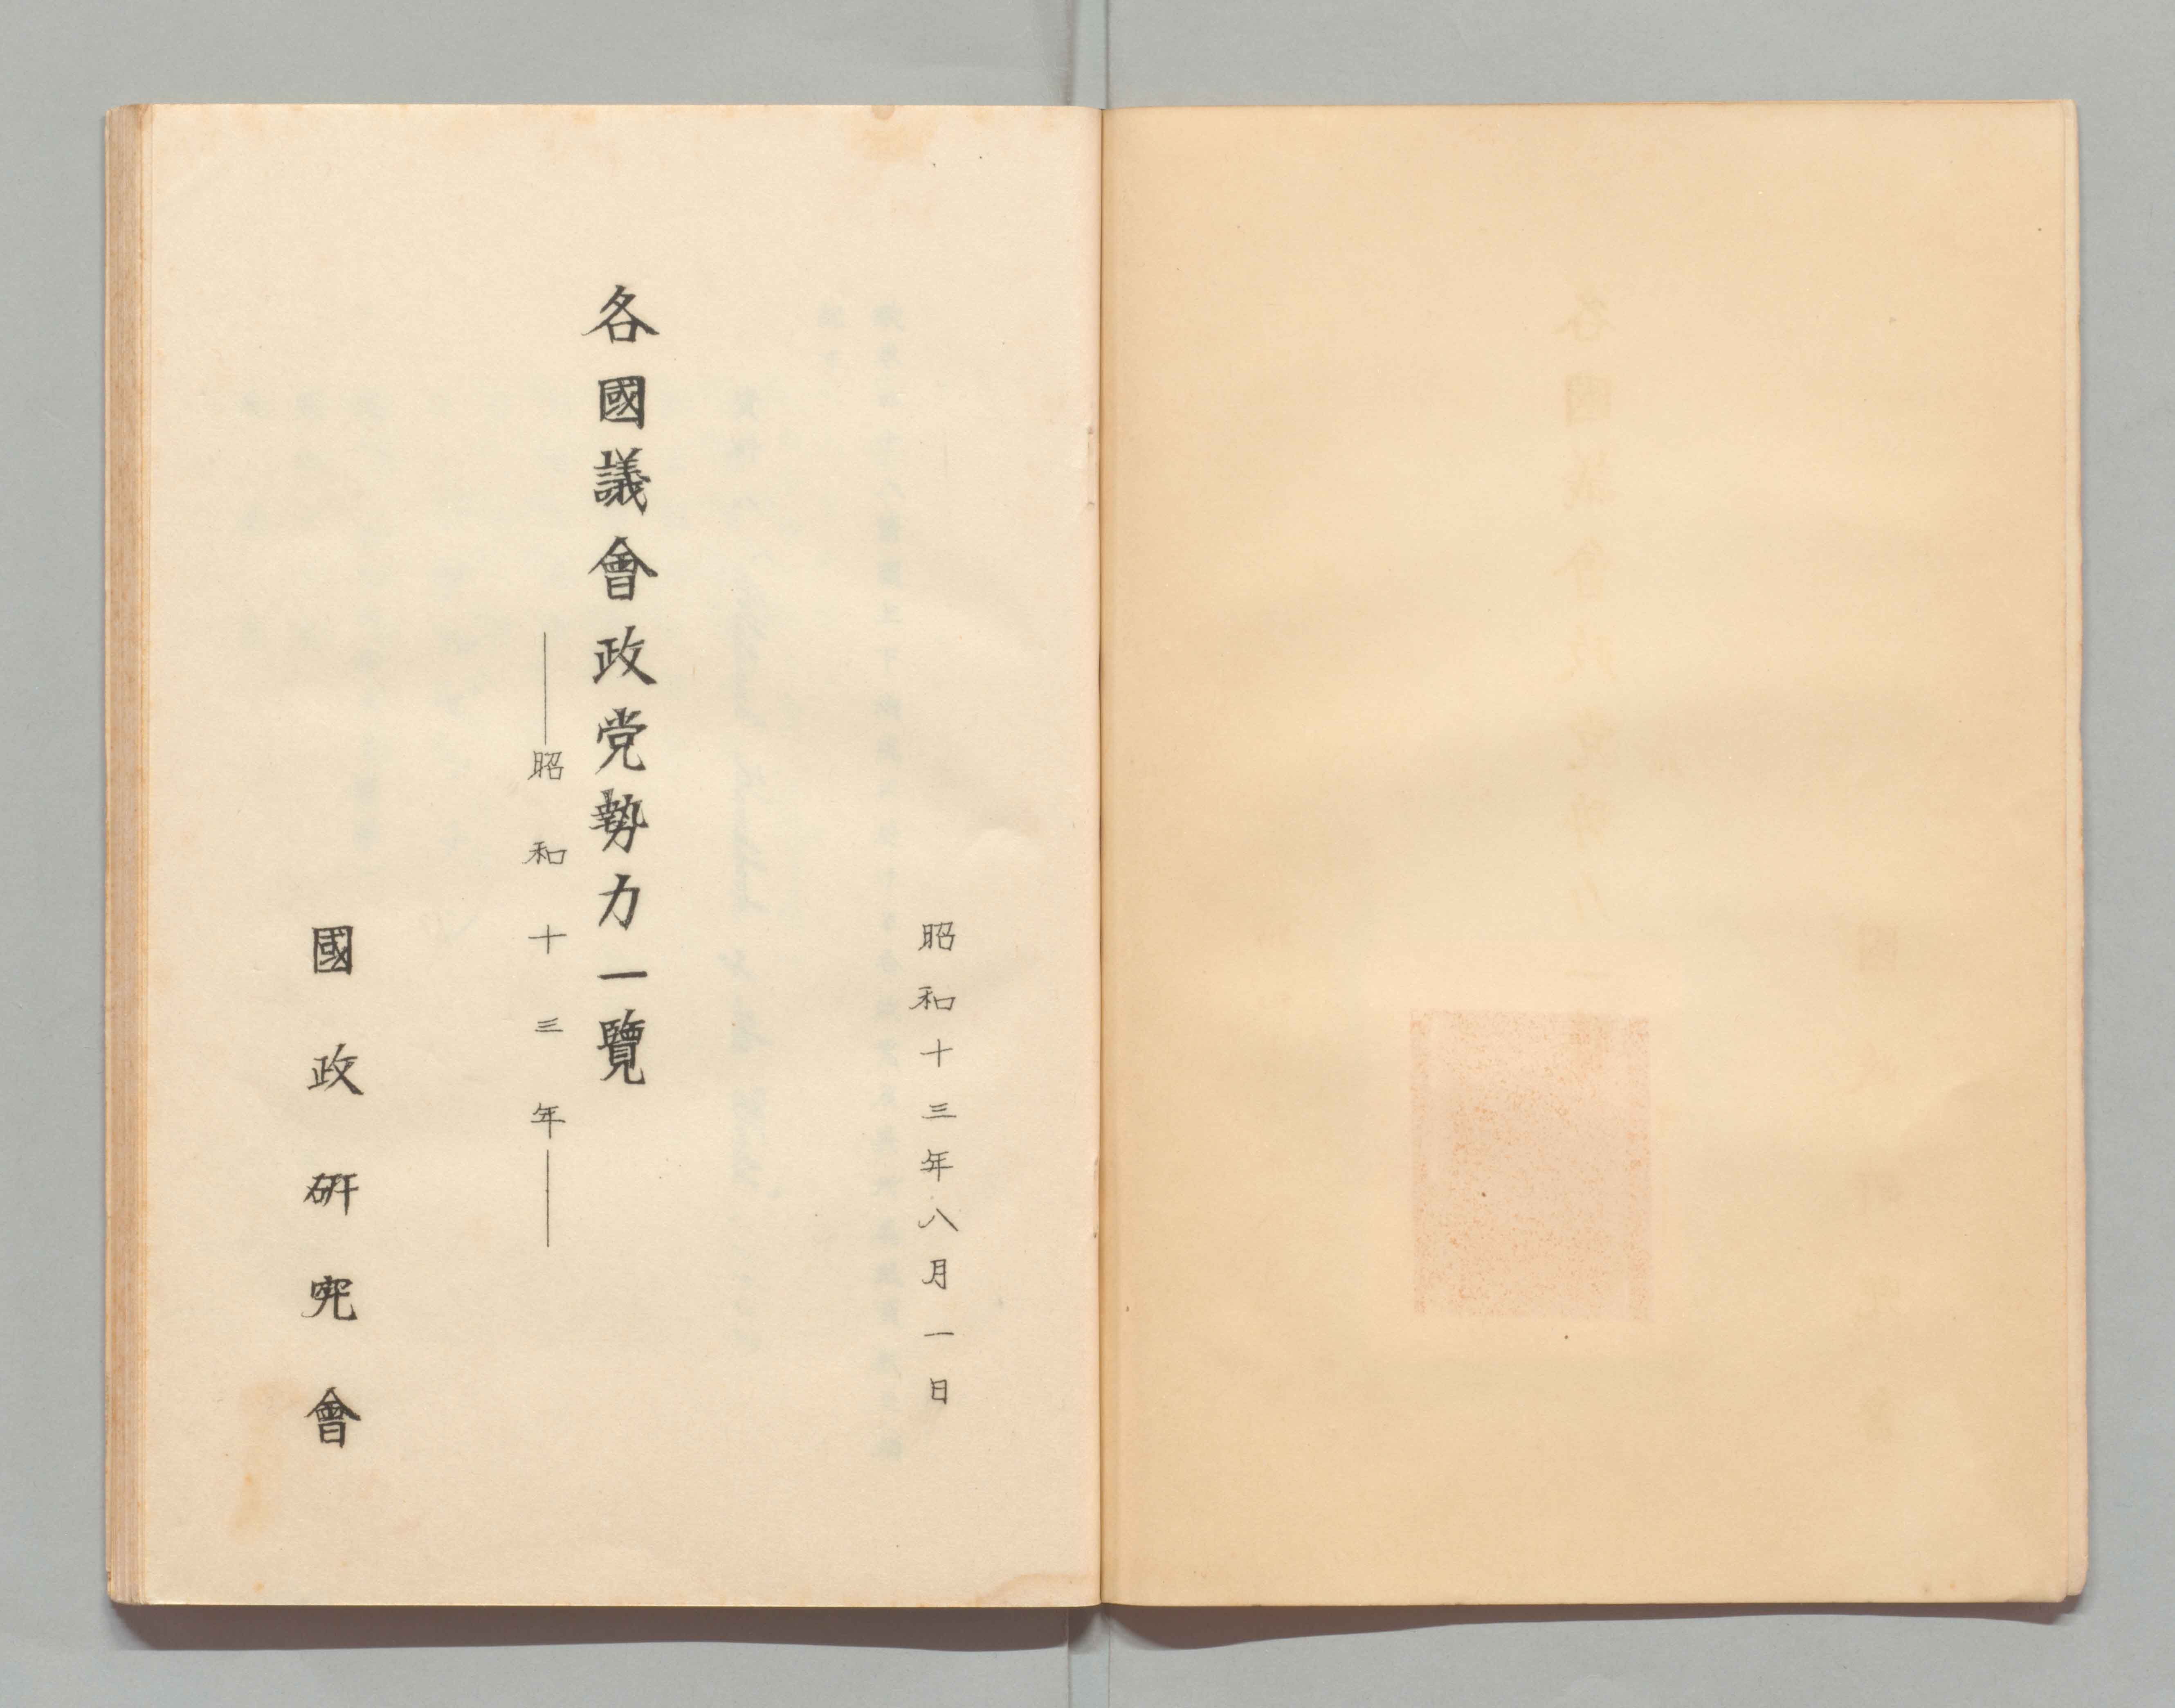 昭和十三年八月一日
各國議會政党勢力一覽
――昭和十三年――
國政硏究會